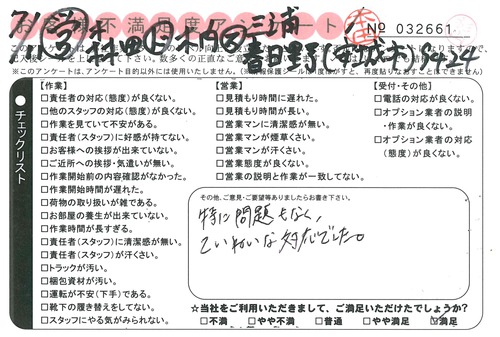 お客様不満足度アンケート
No 032661
※このアンケートは、アンケート目的以外には一切使用いたしません。
チェックリスト
【作業】
□責任者の対応(態度)が良くない。
□他のスタッフの対応(態度)が良くない。
□作業を見ていて不安がある。
□責任者(スタッフ)に好感が持てない。
□お客様への挨拶が出来ていない。
□ご近所への挨拶・気遣いが無い。
□作業開始前の内容確認がなかった。
□作業開始時間が遅れた。
□荷物の取り扱いが雑である。
□お部屋の養生が出来ていない。
□作業時間が長すぎる。
□責任者(スタッフ)に清潔感が無い。
□責任者(スタッフ)が汗くさい。
□トラックが汚い。
□梱包資材が汚い。
□運転が不安(下手)である。
□靴下の履き替えをしてない。
□スタッフにやる気がみられない。
【営業】
□見積もり時間に遅れた。
□見積もり時間が長い。
□営業マンに清潔感が無い。
□営業マンが煙草くさい。
□営業マンが汗くさい。
□営業態度が良くない。
□営業の説明と作業が一致してない。
【受付・その他】
□電話の対応が良くない。
□オプション業者の説明
・作業が良くない。
□オプション業者の対応
(態度)が良くない。
その他、ご意見・ご要望等ありましたらお書き下さい。
特に問題もなく、
ていねいな対応でした。
☆当社をご利用いただきまして、ご満足いただけたでしょうか?
□不満 □やや不満 □普通 □やや満足 ☑満足